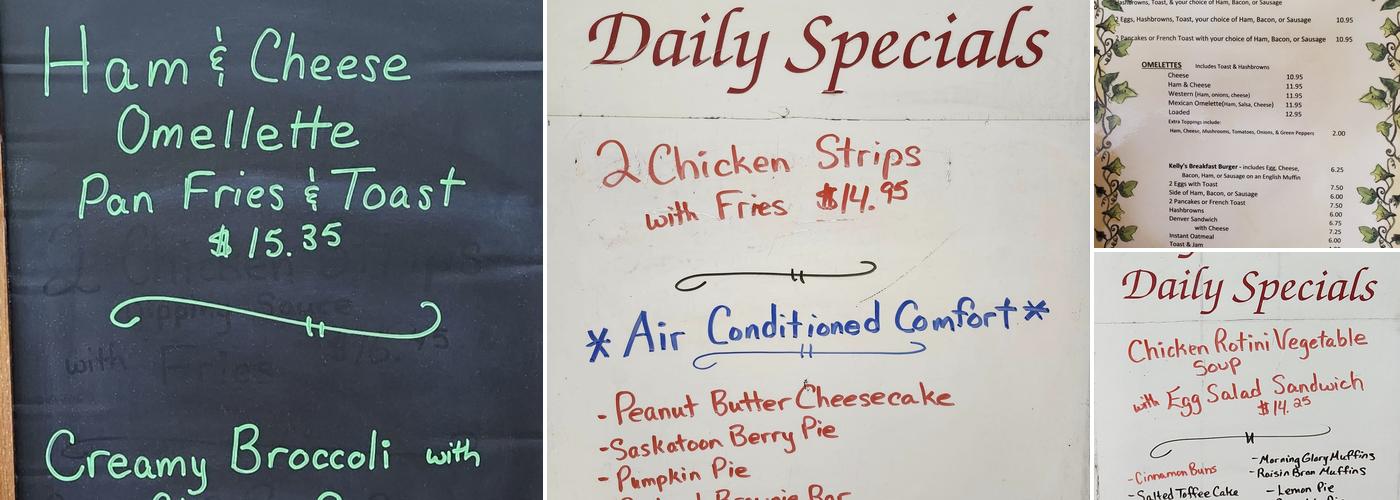 Ham & Cheese
Omellette
Pan Fries & Toast
$15.35
Creamy Broccoli with
Daily Specials
2 Chicken Strips
with Fries $14.95
* Air Conditioned Comfort *
- Peanut Butter Cheesecake
- Saskatoon Berry Pie
- Pumpkin Pie
Hashbrowns, Toast, & your choice of Ham, Bacon, or Sausage
2 Eggs, Hashbrowns, Toast, your choice of Ham, Bacon, or Sausage 10.95
2 Pancakes or French Toast with your choice of Ham, Bacon, or Sausage 10.95
OMELETTES Includes Toast & Hashbrowns
Cheese 10.95
Ham & Cheese 11.95
Western (Ham, onions, cheese) 11.95
Mexican Omelette(Ham, Salsa, Cheese) 11.95
Loaded 12.95
Extra Toppings include:
Ham, Cheese, Mushrooms, Tomatoes, Onions, & Green Peppers 2.00
Kelly's Breakfast Burger - includes Egg, Cheese, 6.25
Bacon, Ham, or Sausage on an English Muffin
2 Eggs with Toast 7.50
Side of Ham, Bacon, or Sausage 6.00
2 Pancakes or French Toast 7.50
Hashbrowns 6.00
Denver Sandwich 6.75
with Cheese 7.25
Instant Oatmeal 6.00
Toast & Jam
Daily Specials
Chicken Rotini Vegetable
Soup
with Egg Salad Sandwich
$14.25
- Cinnamon Buns
- Salted Toffee Cake
- Morning Glory Muffins
- Raisin Bran Muffins
- Lemon Pie